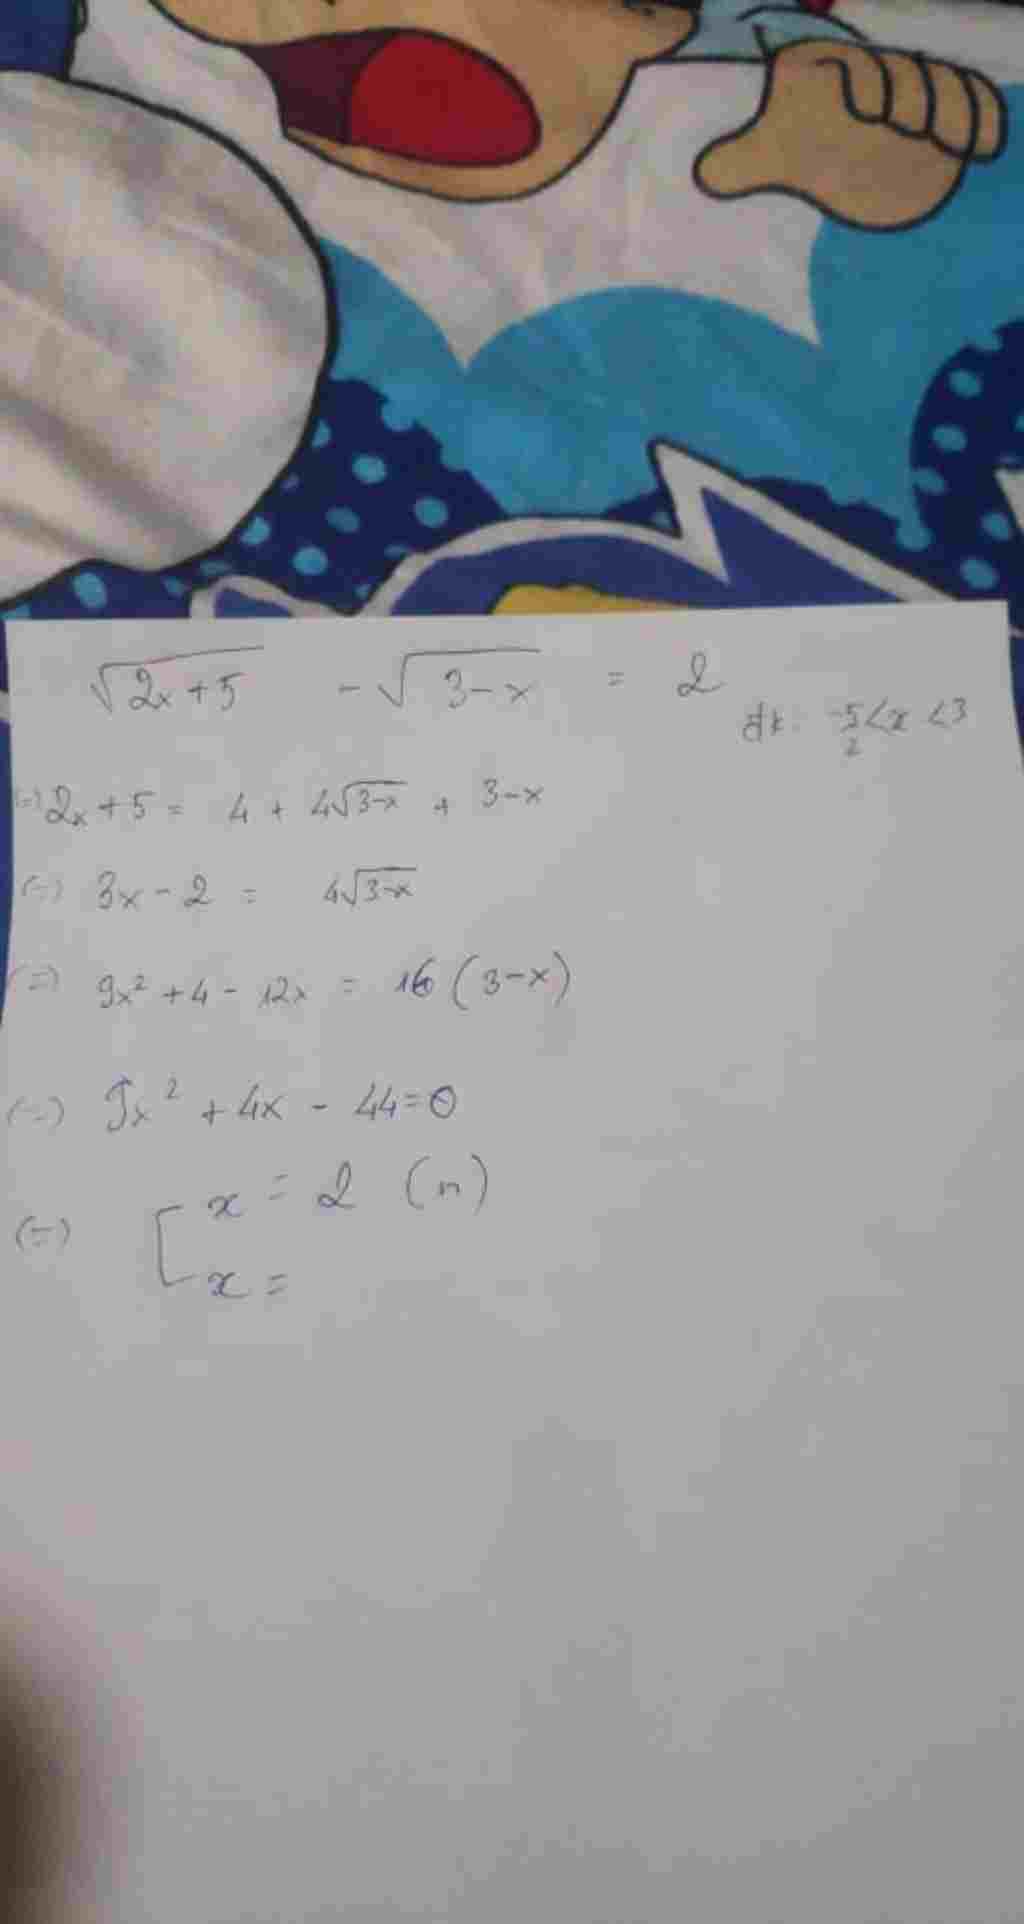 √(2x+5) - √(3-x) = 2
đk: -5/2 < x < 3
(=) 2x+5 = 4 + 4√(3-x) + 3-x
(=) 3x-2 = 4√(3-x)
(=) 9x² + 4 - 12x = 16 (3-x)
(=) 9x² + 4x - 44 = 0
(=) [ x = 2 (n)
x =